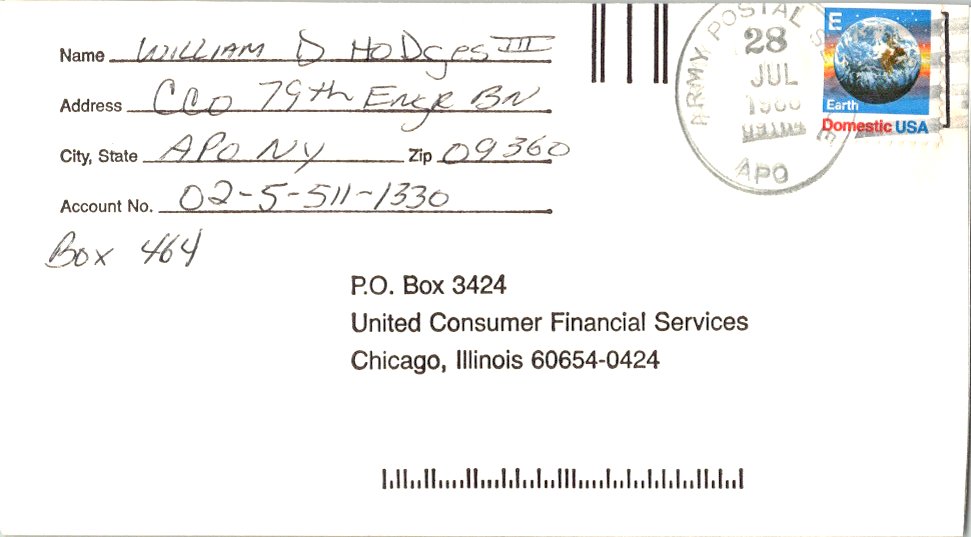 Name WILLIAM D HODges III
Address CCO 79th Engr BN
City, State APO NY Zip 09360
Account No. 02-5-511-1330
Box 464
ARMY POSTAL
28
JUL
APO
E
Earth
Domestic USA
P.O. Box 3424
United Consumer Financial Services
Chicago, Illinois 60654-0424